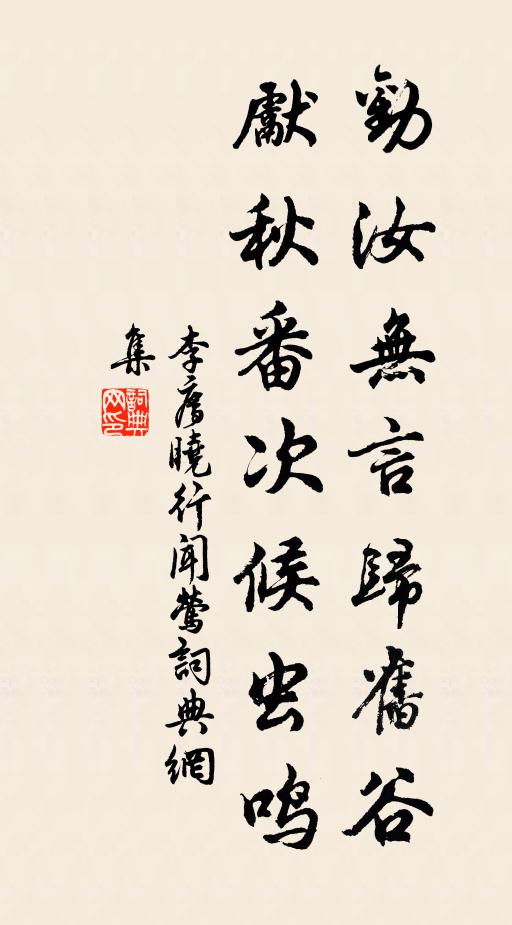 勸汝無言歸舊谷
獻秋番次候虫鸣
李曉行聞鶯詞典網
集
詞典
网印